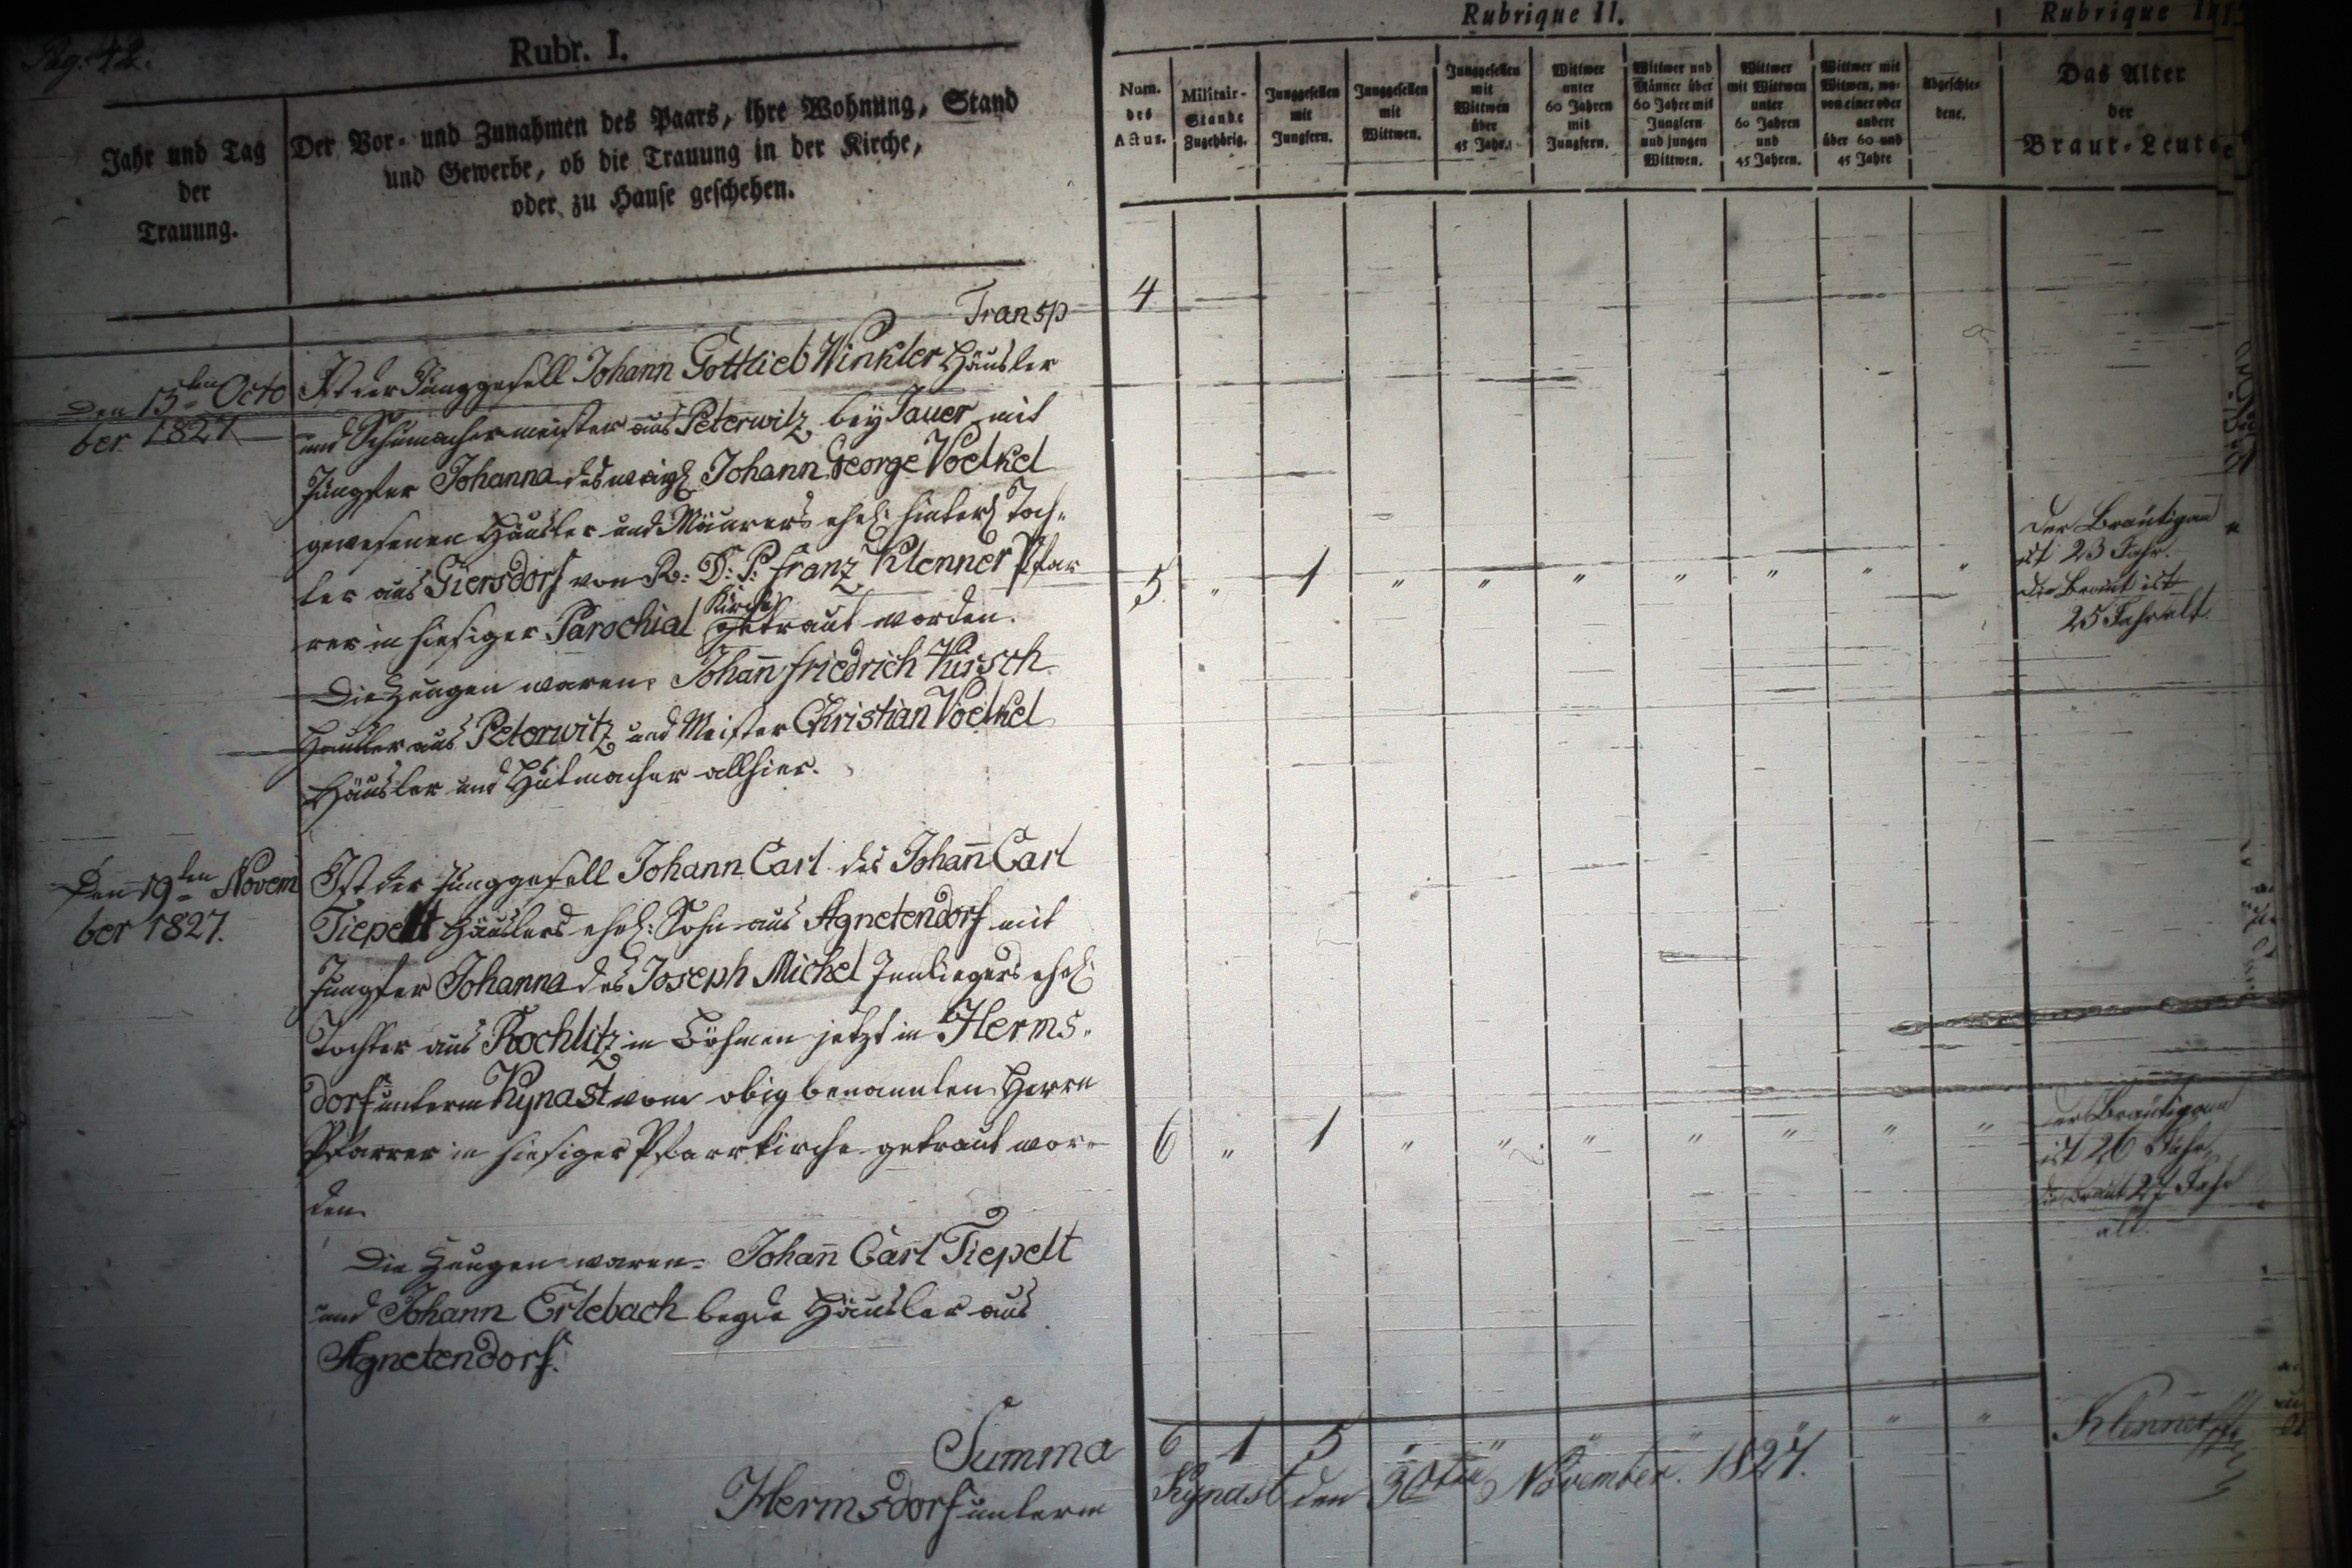 Pag. 42.
Rubr. I.
Jahr und Tag
der
Trauung.
Der Vor- und Zunahmen des Paars, ihre Wohnung, Stand
und Gewerbe, ob die Trauung in der Kirche,
oder zu Hause geschehen.
Rubrique II.
Num.
des
Actus.
Militair-
Stande
Zugehörig.
Junggesellen
mit
Jungfern.
Junggesellen
mit
Wittwen.
Junggesellen
mit
Wittwen
über
45 Jahr.
Wittwer
unter
60 Jahren
mit
Jungfern.
Wittwer und
Männer über
60 Jahre mit
Jungfern
und jungen
Wittwen.
Wittwer
mit Wittwen
unter
60 Jahren
und
45 Jahren.
Wittwer mit
Witwen, wo-
von einer oder
andere
über 60 und
45 Jahre
Abgeschie-
dene.
Rubrique
Das Alter
der
Braut-Leute
Transp 4
Den 15ten Octo
ber 1827
Ist der Junggesell Johann Gottlieb Winkler Häusler
und Schumachermeister aus Peterwitz bey Jauer mit
Jungfer Johanna des weigl Johann George Voelkel
gewesenen Häusler und Maurers ehel: hinterl Toch-
ter aus Giersdorf von R: D: P: Franz Klenner Pfar
rer in hiesiger Parochial Kirche getraut worden.
Die Zeugen waren. Johann Friedrich Kirsch
Häusler aus Peterwitz und Meister Christian Voelkel
Häusler und Hutmacher allhier.
5 " 1 " " " " " " "
Der Bräutigam
ist 23 Jahr.
die Braut ist
25 Jahr alt.
Den 19ten Novem
ber 1827.
Ist der Junggesell Johann Carl des Johann Carl
Tiepelt Häuslers ehel: Sohn aus Agnetendorf mit
Jungfer Johanna des Joseph Michel Innliegers ehel:
Tochter aus Rochlitz in Böhmen jetzt in Herms-
dorf unterm Kynast vom obig benannten Herrn
Pfarrer in hiesiger Pfarrkirche getraut wor-
den.
6 " 1 " " " " " " "
der Bräutigam
ist 26 Jahr,
die Braut 27 Jahr
alt.
Die Zeugen waren. Johann Carl Tiepelt
und Johann Erlebach beyde Häusler aus
Agnetendorf.
Summa 6 1 5 " " " " " " "
Hermsdorf unterm Kynast den 30ten November. 1827.
Klenner